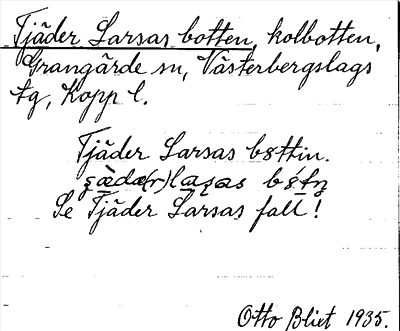 Tjäder Larsas botten, kolbotten,
Grangärde sn, Västerbergslags
tg, Kopp l.
Tjäder Larsas bottin.
Se Tjäder Larsas fall!
Otto Blixt 1935.